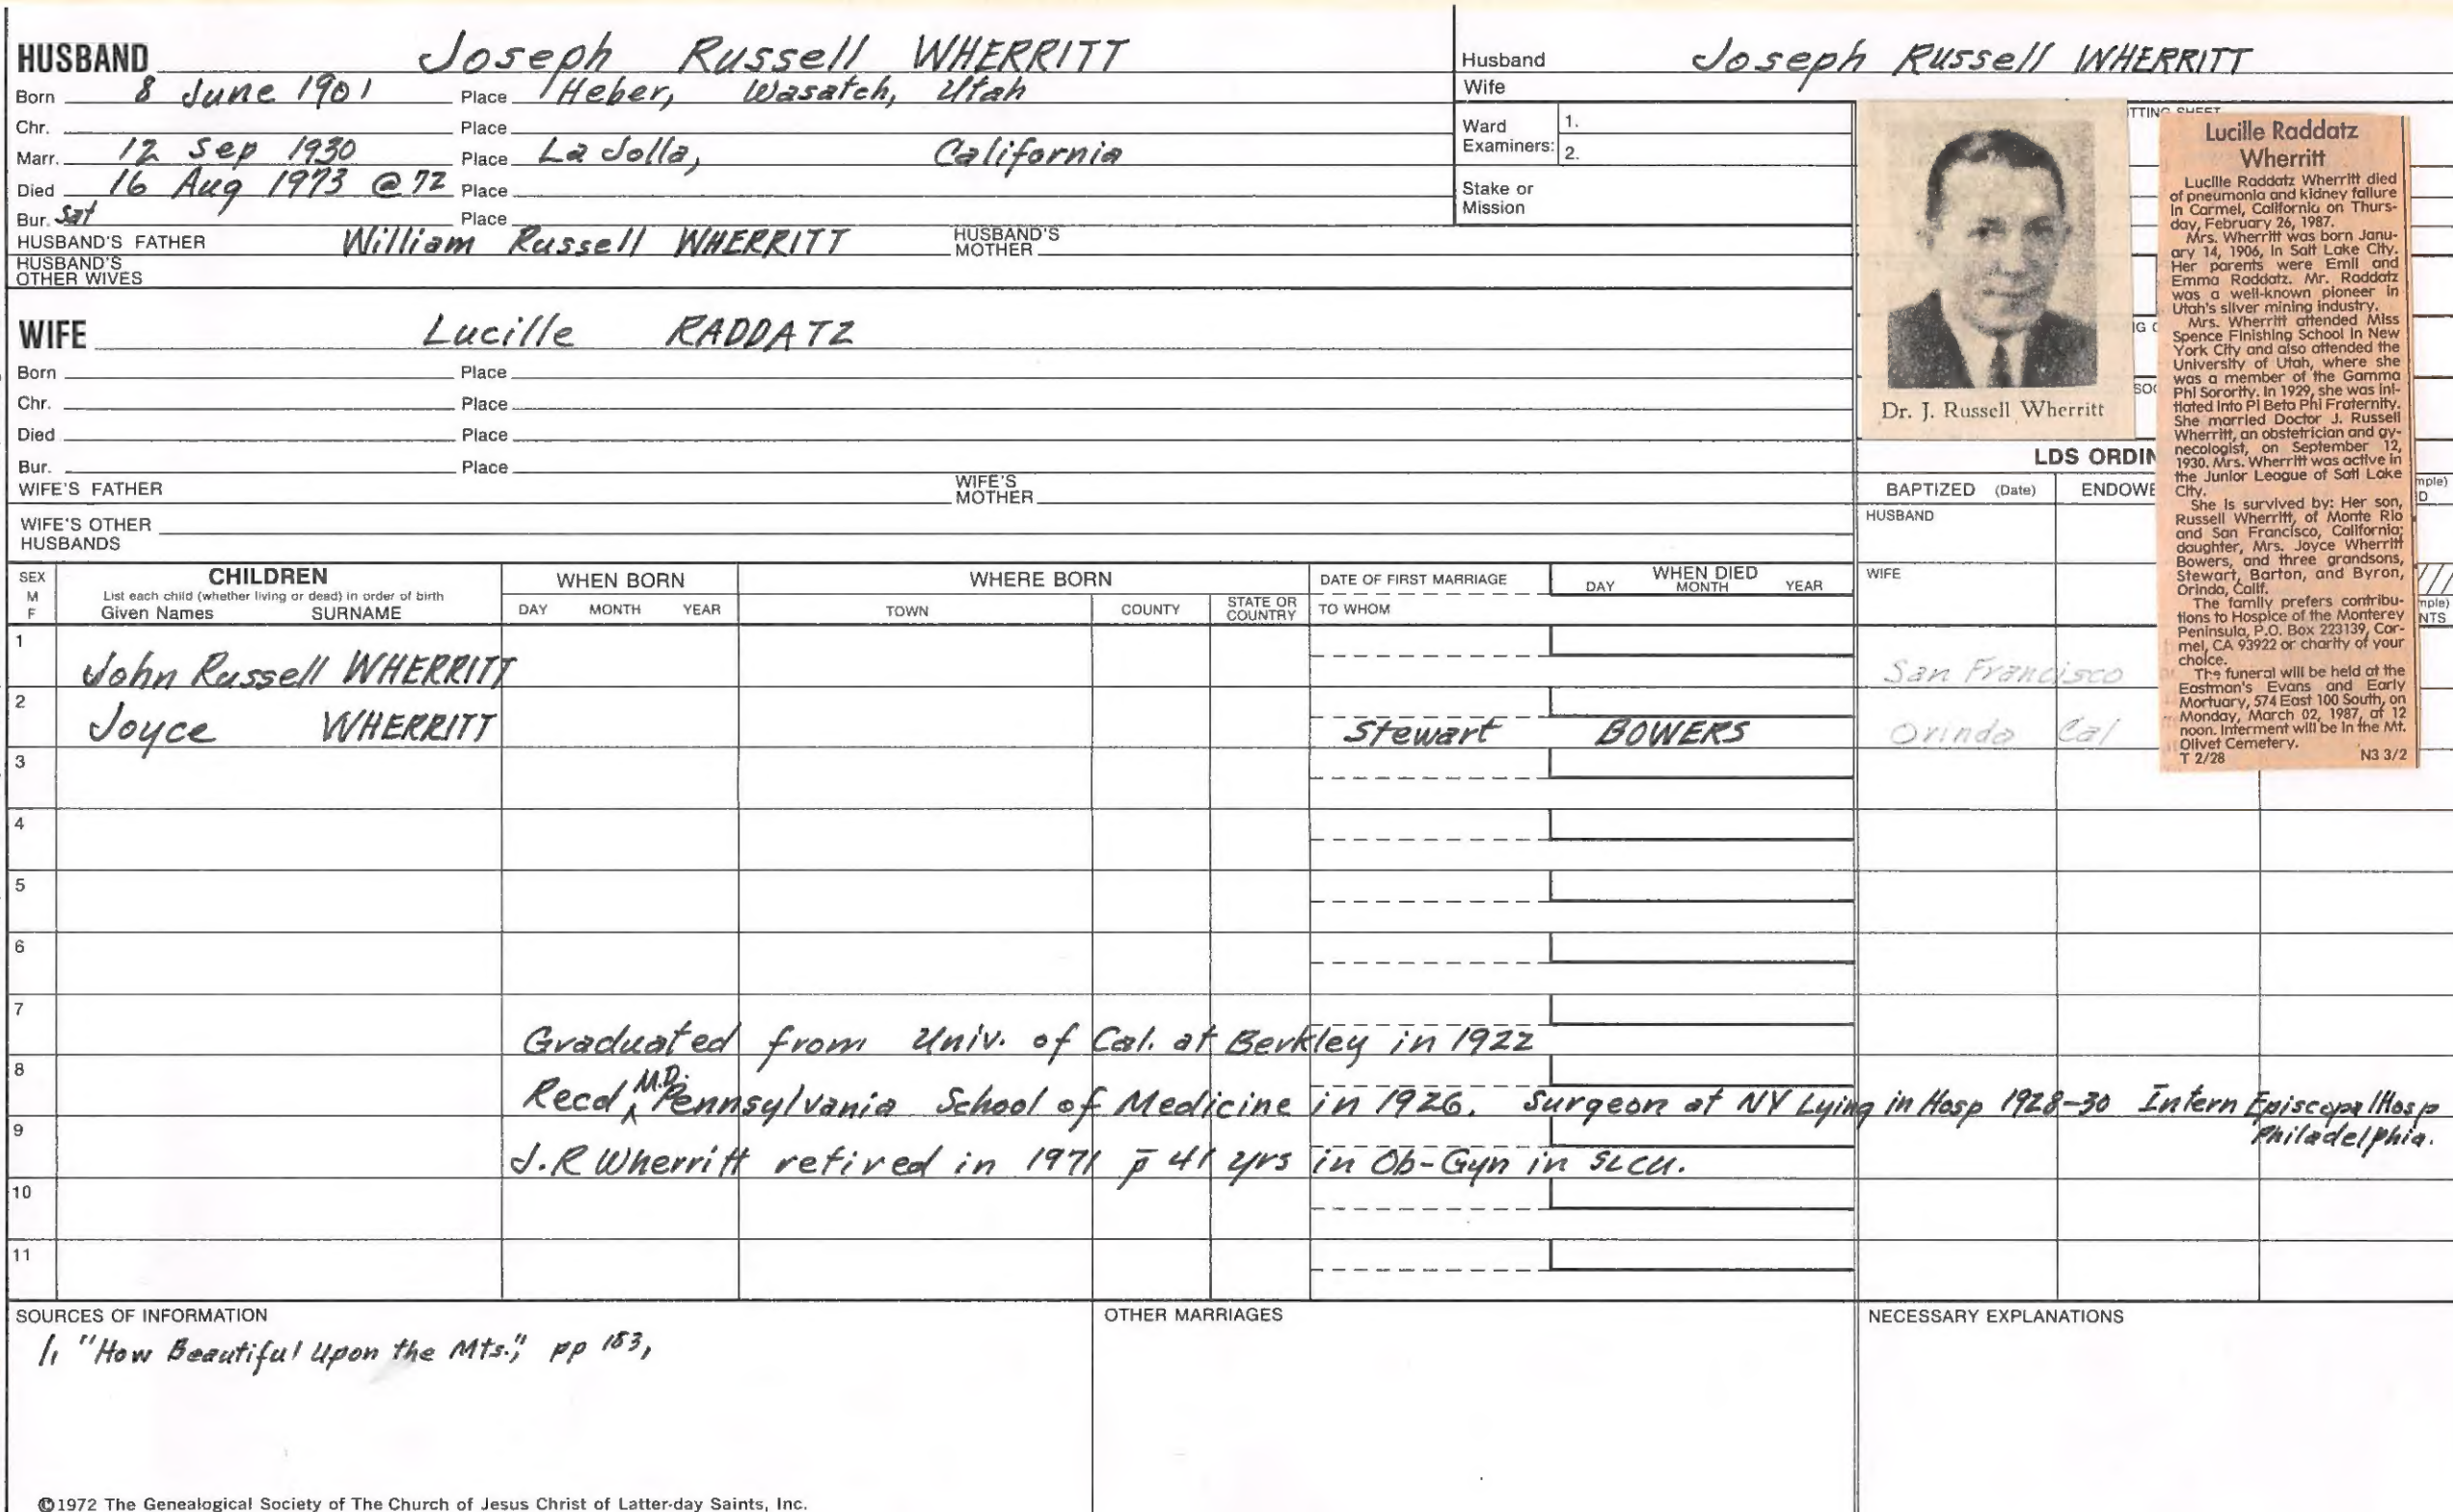 HUSBAND Joseph Russell WHERRITT
Born 8 June 1901 Place Heber, Wasatch, Utah
Chr. Place
Marr. 12 Sep 1930 Place La Jolla, California
Died 16 Aug 1973 @ 72 Place
Bur. Sat Place
HUSBAND'S FATHER William Russell WHERRITT HUSBAND'S MOTHER
HUSBAND'S OTHER WIVES
WIFE Lucille RADDATZ
Born Place
Chr. Place
Died Place
Bur. Place
WIFE'S FATHER WIFE'S MOTHER
WIFE'S OTHER HUSBANDS
Husband Joseph Russell WHERRITT
Wife
Ward Examiners: 1.
2.
Stake or Mission
Dr. J. Russell Wherritt
TTING SHEET
Lucille Raddatz
Wherritt
Lucille Raddatz Wherritt died
of pneumonia and kidney failure
in Carmel, California on Thurs-
day, February 26, 1987.
Mrs. Wherritt was born Janu-
ary 14, 1906, in Salt Lake City.
Her parents were Emil and
Emma Raddatz. Mr. Raddatz
was a well-known pioneer in
Utah's silver mining industry.
Mrs. Wherritt attended Miss
Spence Finishing School in New
York City and also attended the
University of Utah, where she
was a member of the Gamma
Phi Sorority. In 1929, she was ini-
tiated into Pi Beta Phi Fraternity.
She married Doctor J. Russell
Wherritt, an obstetrician and gy-
necologist, on September 12,
1930. Mrs. Wherritt was active in
the Junior League of Salt Lake
City.
She is survived by: Her son,
Russell Wherritt, of Monte Rio
and San Francisco, California;
daughter, Mrs. Joyce Wherritt
Bowers, and three grandsons,
Stewart, Barton, and Byron,
Orinda, Calif.
The family prefers contribu-
tions to Hospice of the Monterey
Peninsula, P.O. Box 223139, Car-
mel, CA 93922 or charity of your
choice.
The funeral will be held at the
Eastman's Evans and Early
Mortuary, 574 East 100 South, on
Monday, March 02, 1987, at 12
noon. Interment will be in the Mt.
Olivet Cemetery.
T 2/28 N3 3/2
LDS ORDIN
BAPTIZED (Date) ENDOWE
HUSBAND
WIFE
SEX M F CHILDREN List each child (whether living or dead) in order of birth Given Names SURNAME WHEN BORN DAY MONTH YEAR WHERE BORN TOWN COUNTY STATE OR COUNTRY DATE OF FIRST MARRIAGE TO WHOM WHEN DIED DAY MONTH YEAR
1 John Russell WHERRITT San Francisco
2 Joyce WHERRITT Stewart BOWERS Orinda Cal
3
4
5
6
7
Graduated from Univ. of Cal. at Berkley in 1922
8
Recd M.D. Pennsylvania School of Medicine in 1926. Surgeon at NY Lying in Hosp 1928-30 Intern Episcopal Hosp
9 Philadelphia.
J.R Wherritt retired in 1971 p̄ 41 yrs in Ob-Gyn in SLCU.
10
11
SOURCES OF INFORMATION
1, "How Beautiful Upon the Mts.," pp 183,
OTHER MARRIAGES
NECESSARY EXPLANATIONS
©1972 The Genealogical Society of The Church of Jesus Christ of Latter-day Saints, Inc.